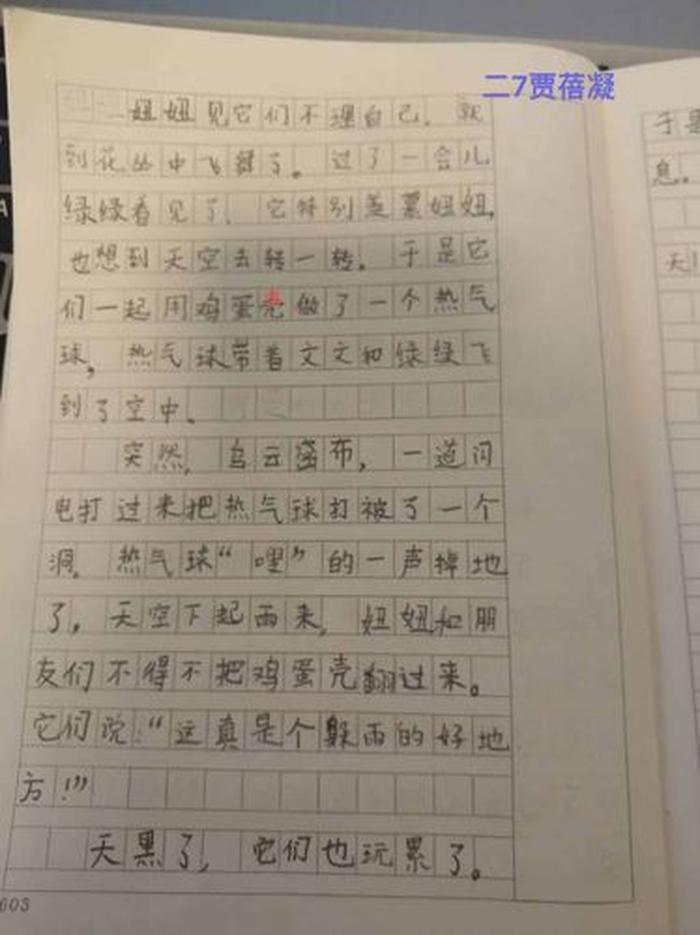 二7贾蓓凝
妞妞见它们不理自己，就
到花丛中飞舞了。过了一会儿
绿绿看见了，它特别羡慕妞妞，
也想到天空去转一转。于是它
们一起用鸡蛋壳做了一个热气
球，热气球带着文文和绿绿飞
到了空中。
突然，乌云密布，一道闪
电打过来把热气球打被了一个
洞。热气球“哩”的一声掉地
了，天空下起雨来，妞妞和朋
友们不得不把鸡蛋壳翻过来。
它们说：“这真是个躲雨的好地
方！”
天黑了，它们也玩累了。
603
于是
息。
天!